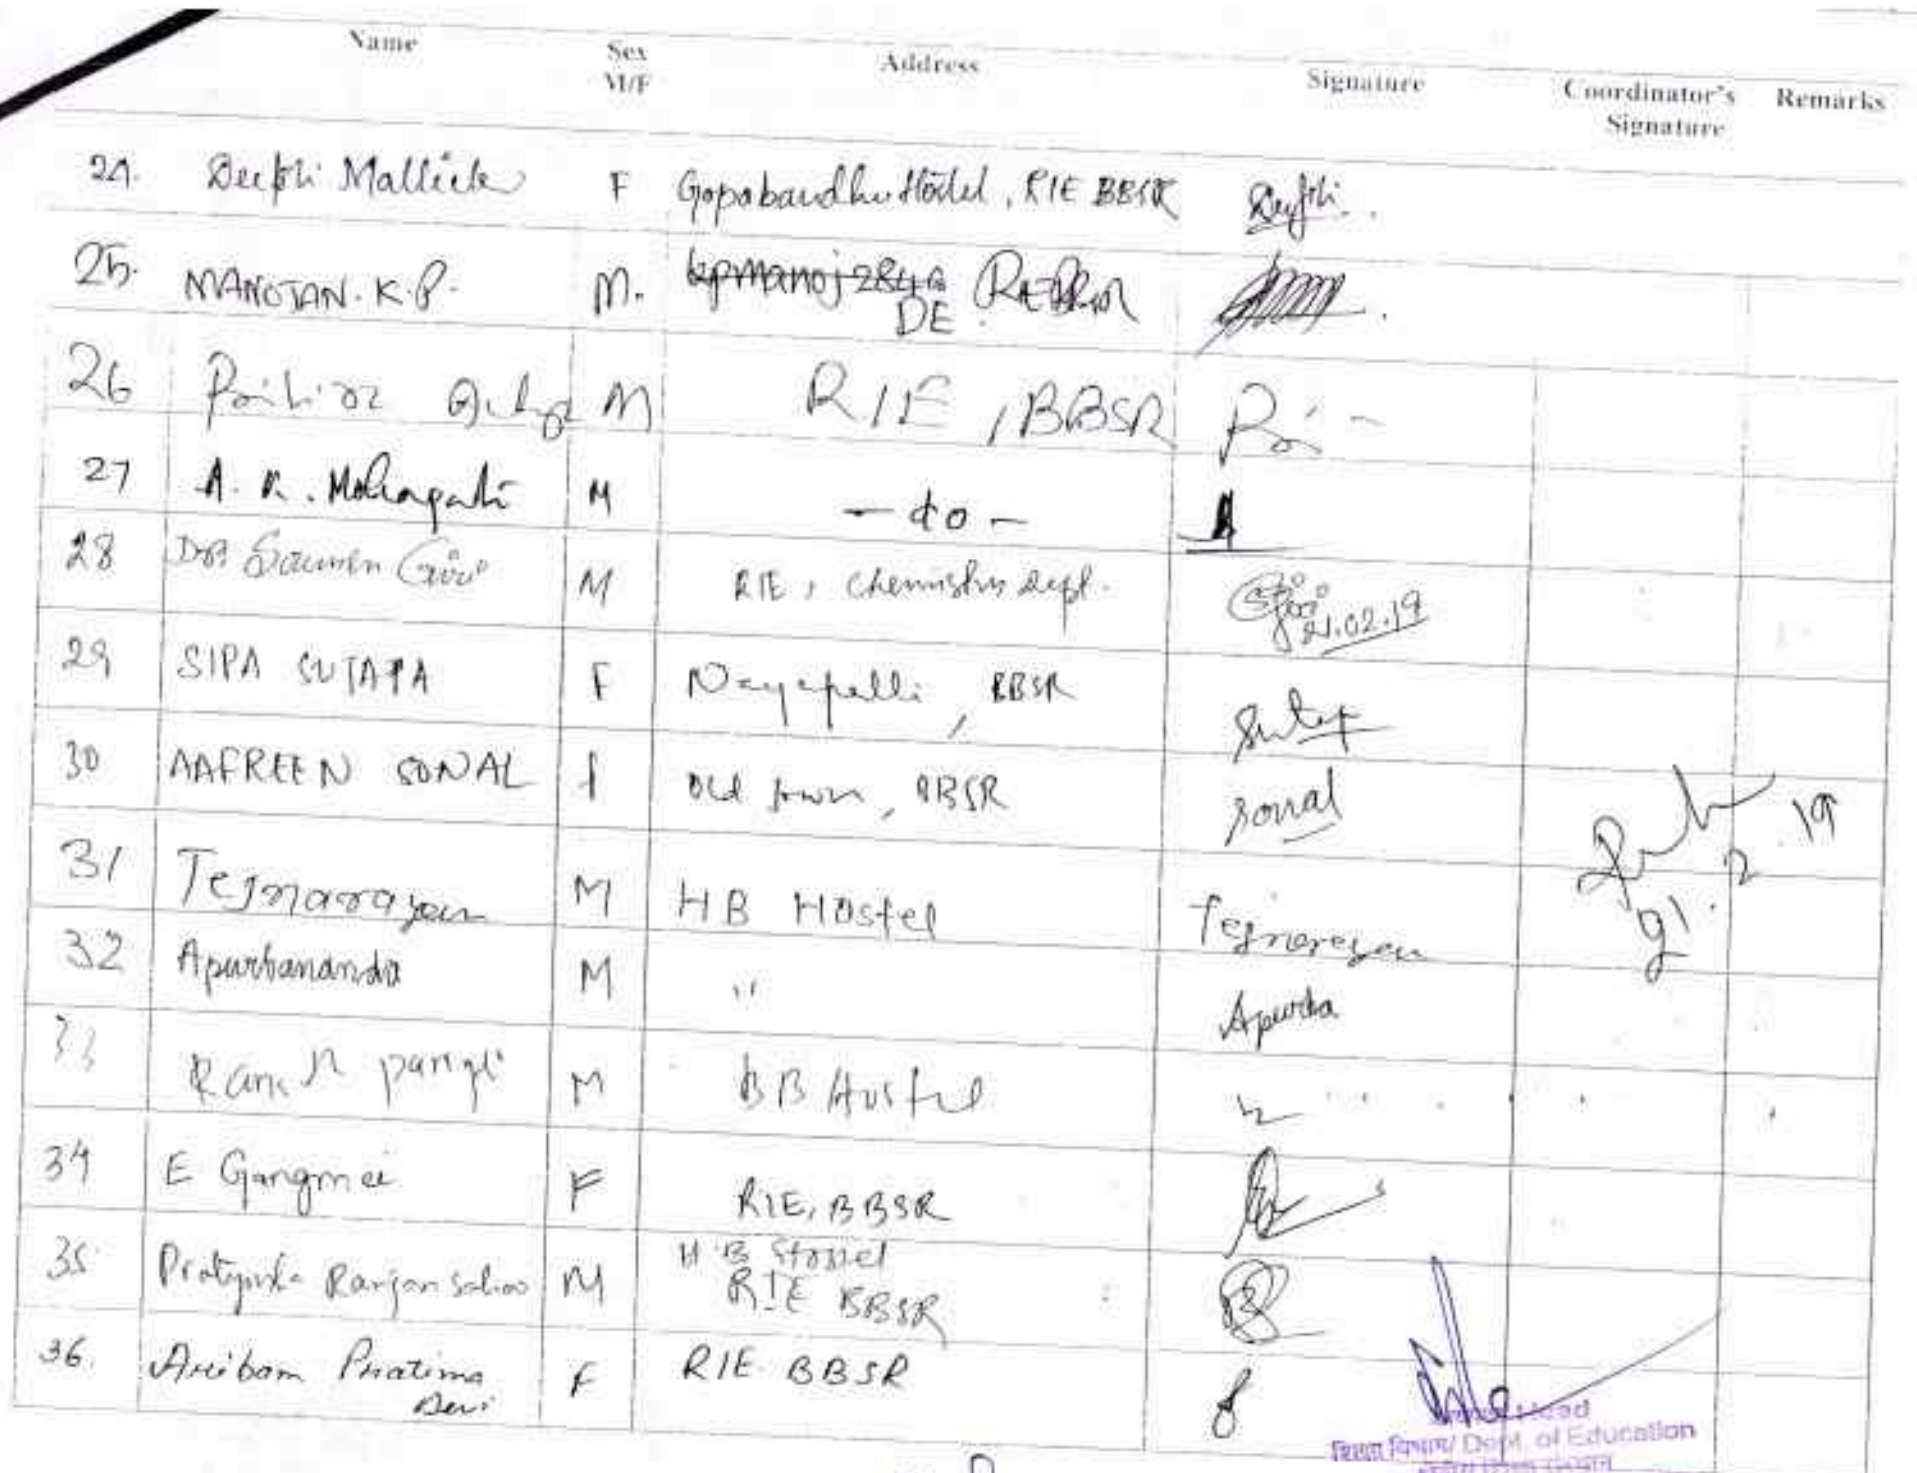 Name Sex M/F Address Signature Coordinator's Signature Remarks
24. Deepti Mallick F Gopabandhu Hostel, RIE BBSR Deepti
25. MANOJAN. K.P. M. kpmanoj284@ DE.
26 M RIE, BBSR
27 A. K. Mohapatra M - do -
28 Soumen Giri M RIE, Chemistry dept. 21.02.19
29 SIPA SUTAPA F Nayapalli, BBSR Sutap
30 AAFREEN SONAL f Old town, BBSR Sonal
31 Tejnarayan M HB Hostel Tejnarayan
32 Apurbananda M " Apurba
33 M BB Hostel
34 E Gangmei F RIE, BBSR
35 Ranjan Sahoo M H B Hostel
RIE BBSR
36. Aribam Pratima F RIE BBSR
Devi
Head
शिक्षा विभाग/ Dept. of Education